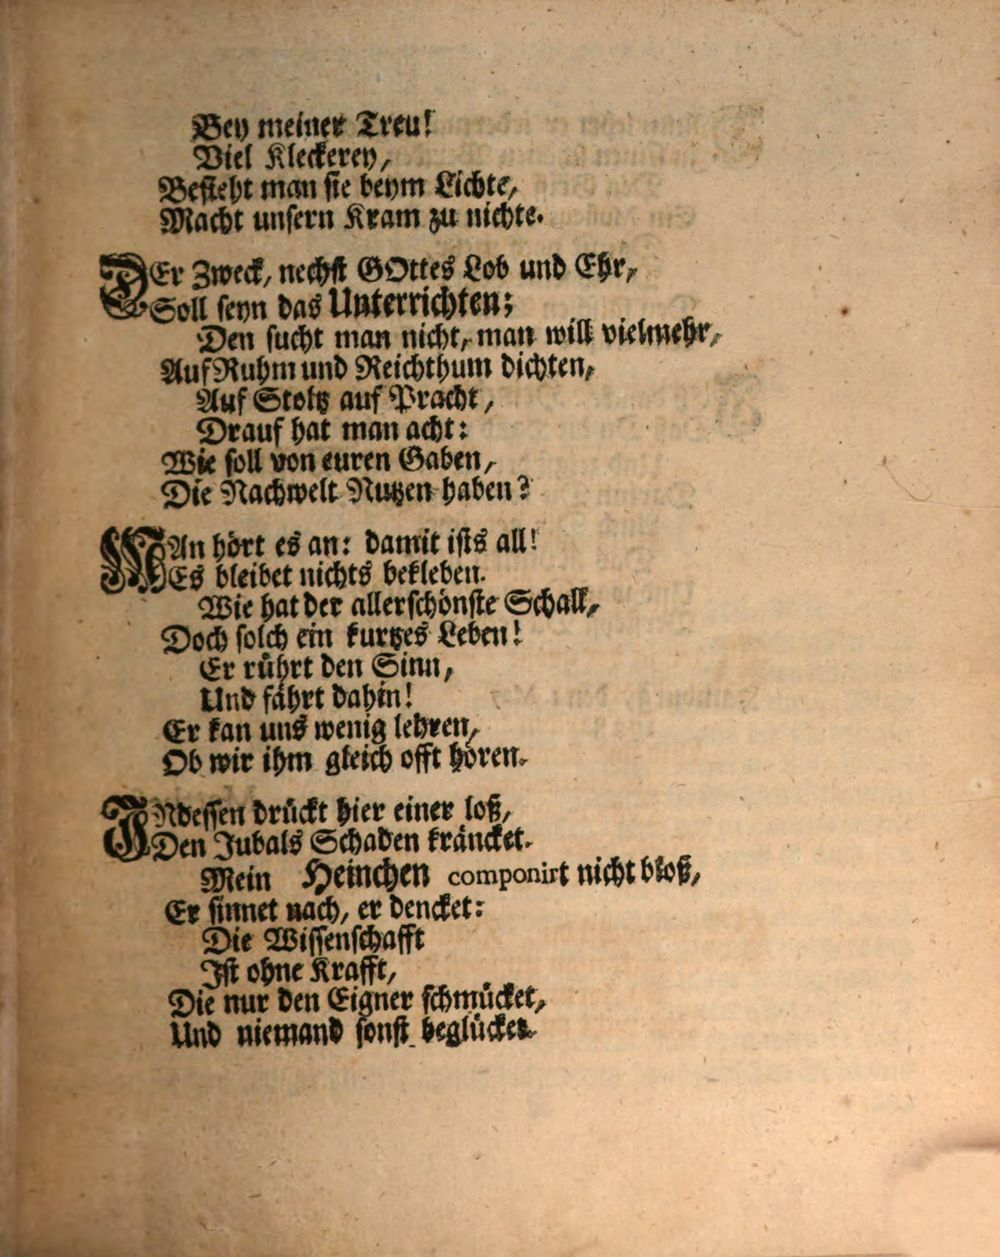 Bey meiner Treu!
Viel Kleckerey,
Besieht man sie beym Lichte,
Macht unsern Kram zu nichte.
DEr Zweck, nechst GOttes Lob und Ehr,
Soll seyn das Unterrichten;
Den sucht man nicht, man will vielmehr,
Auf Ruhm und Reichthum dichten,
Auf Stoltz auf Pracht,
Drauf hat man acht:
Wie soll von euren Gaben,
Die Nachwelt Nutzen haben?
MAn hört es an: damit ists all!
Es bleibet nichts bekleben.
Wie hat der allerschönste Schall,
Doch solch ein kurtzes Leben!
Er rührt den Sinn,
Und fährt dahin!
Er kan uns wenig lehren,
Ob wir ihm gleich offt hören.
INdessen drückt hier einer loß,
Den Jubals Schaden kräncket.
Mein Heinchen componirt nicht bloß,
Er sinnet nach, er dencket:
Die Wissenschafft
Ist ohne Krafft,
Die nur den Eigner schmücket,
Und niemand sonst beglücket.